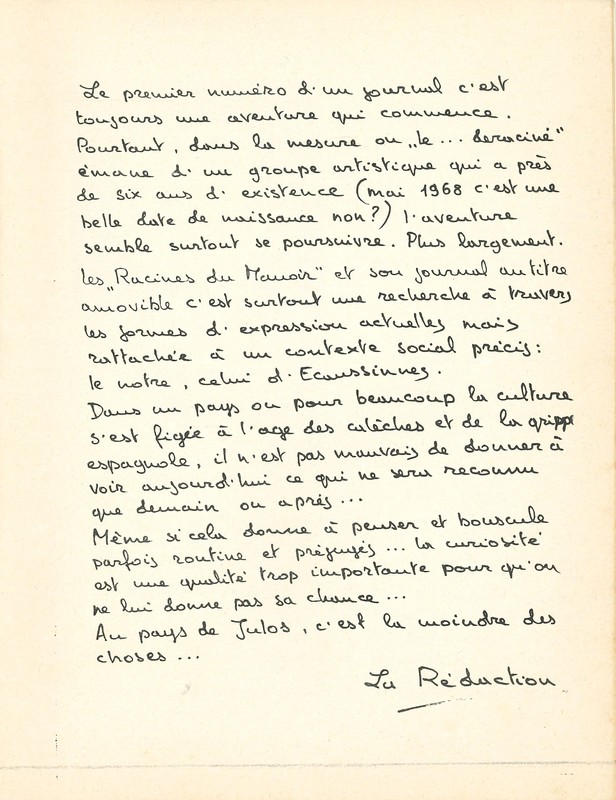 Le premier numéro d'un journal c'est
toujours une aventure qui commence.
Pourtant, dans la mesure ou „le ... deraciné"
émane d'un groupe artistique qui a près
de six ans d'existence (mai 1968 c'est une
belle date de naissance non?) l'aventure
semble surtout se poursuivre. Plus largement.
les „Racines du Manoir" et son journal au titre
amovible c'est surtout une recherche à travers
les formes d'expression actuelles mais
rattachée à un contexte social précis:
le notre, celui d'Ecaussinnes.
Dans un pays ou pour beaucoup la culture
s'est figée à l'age des calèches et de la grippe
espagnole, il n'est pas mauvais de donner à
voir aujourd'hui ce qui ne sera reconnu
que demain ou après ...
Même si cela donne à penser et bouscule
parfois routine et préjugés ... la curiosité
est une qualité trop importante pour qu'on
ne lui donne pas sa chance ...
Au pays de Julos, c'est la moindre des
choses ...
La Rédaction